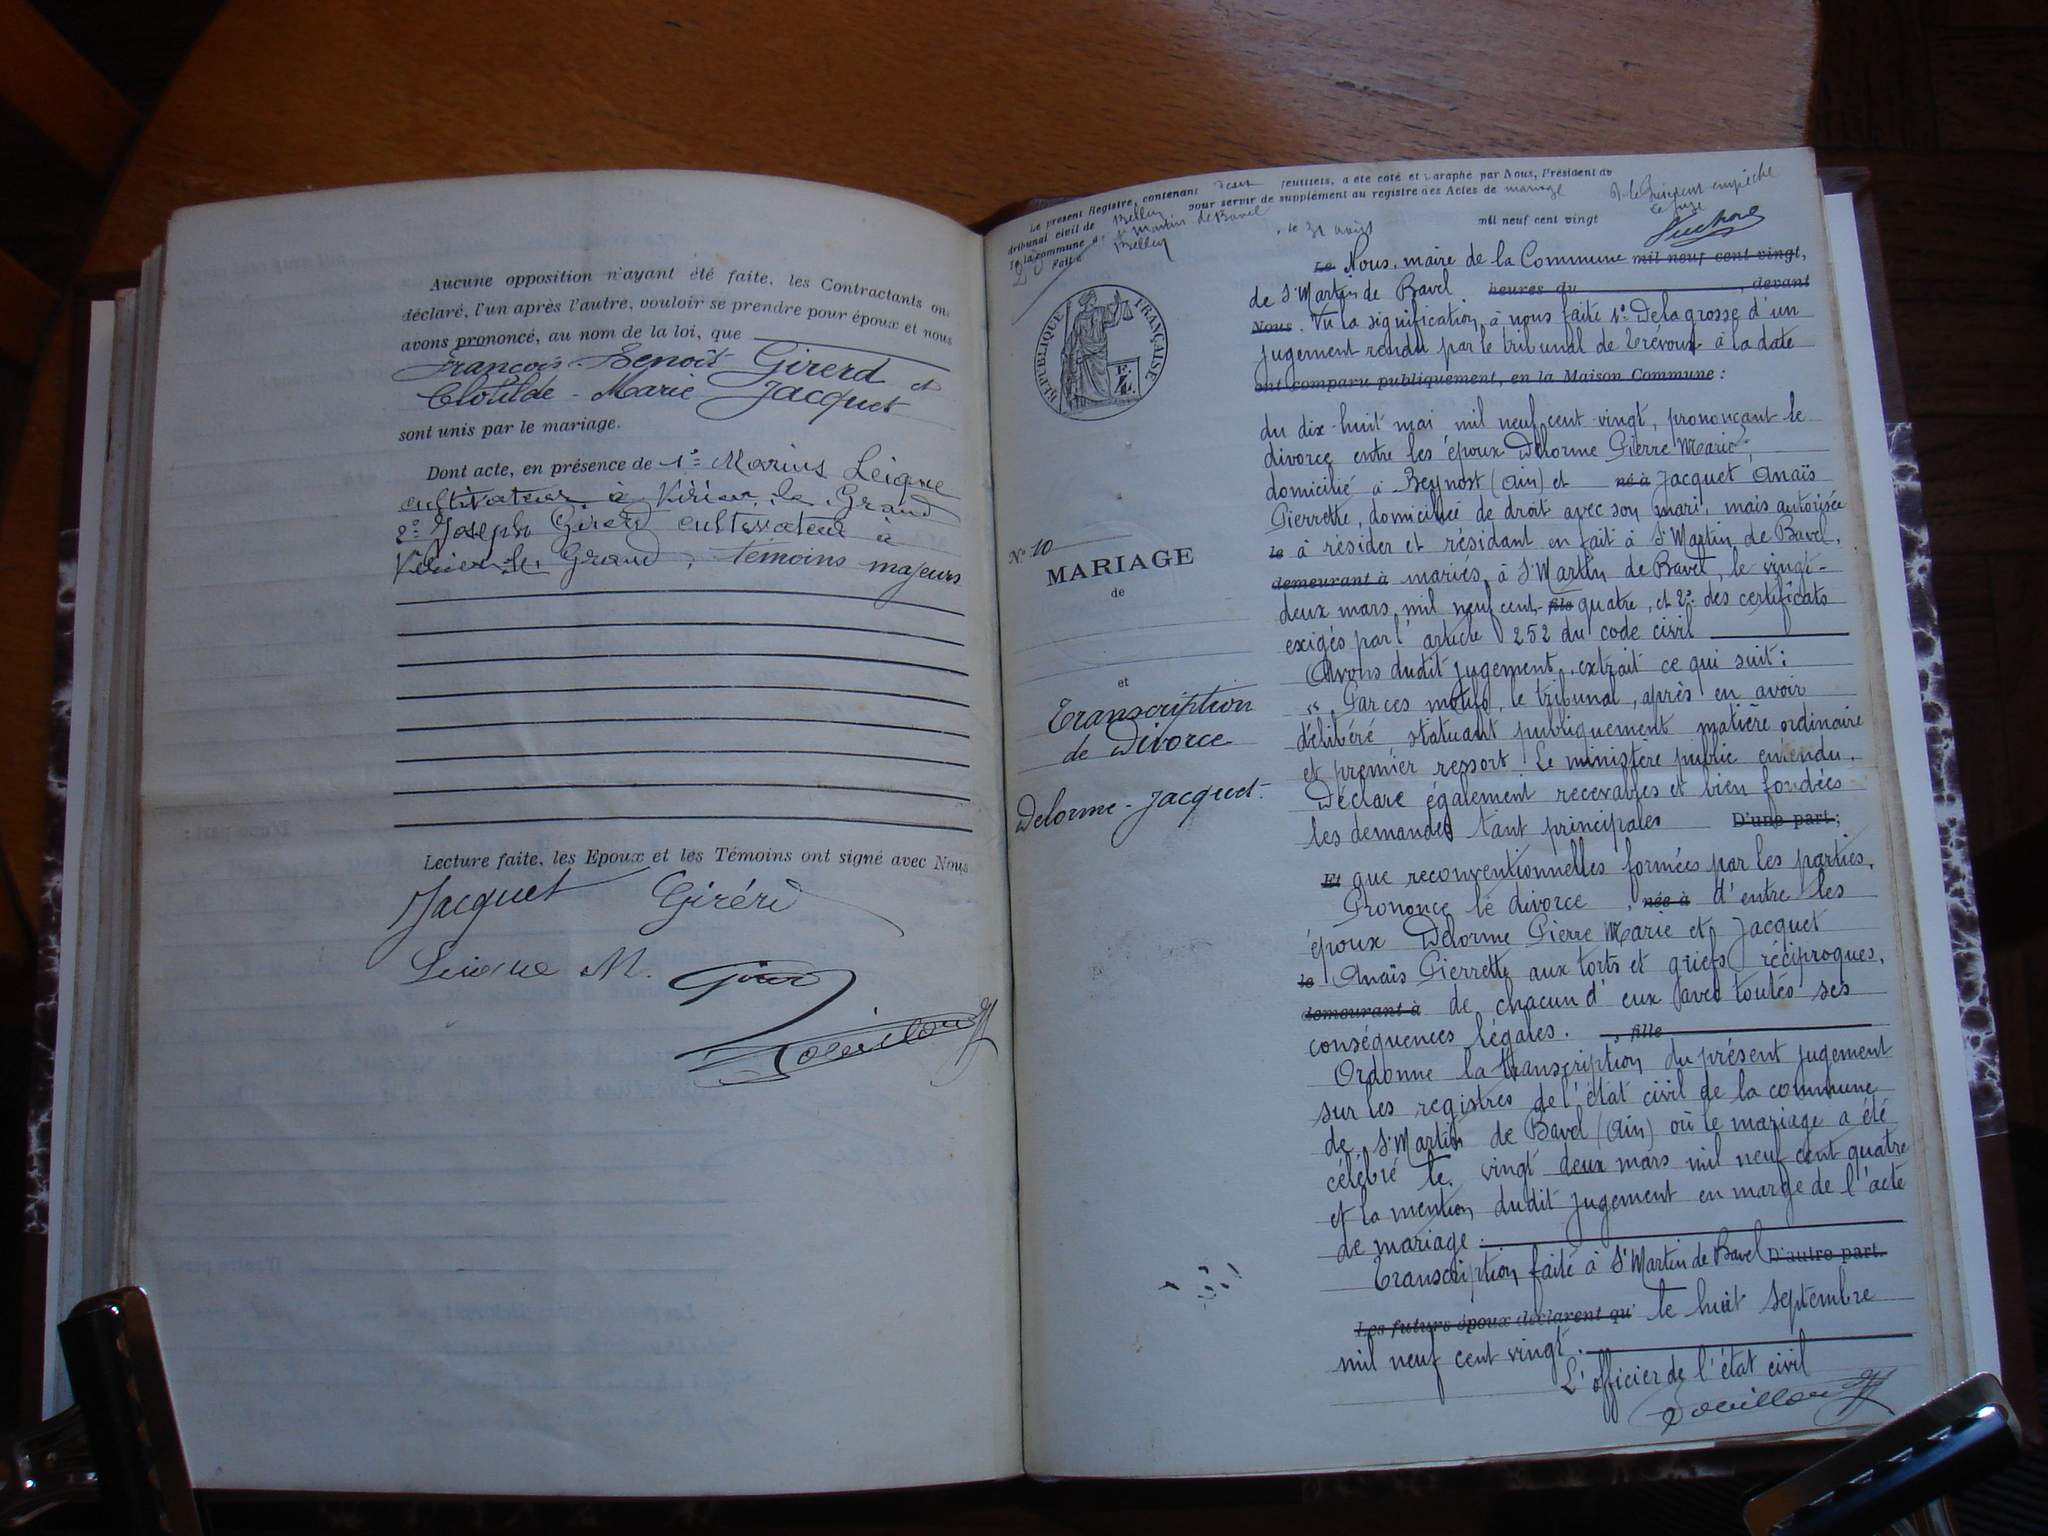 Aucune opposition n'ayant été faite, les Contractants ont
déclaré, l'un après l'autre, vouloir se prendre pour époux et nous
avons prononcé, au nom de la loi, que
François-Benoît Girerd et
Clotilde-Marie Jacquet
sont unis par le mariage.
Dont acte, en présence de 1º Marius Leigne
cultivateur à Virieu-le-Grand
2º Joseph Girerd cultivateur à
Virieu-le-Grand, témoins majeurs
Lecture faite, les Epoux et les Témoins ont signé avec Nous
Jacquet Girérd
Leigne M. Girerd
Le présent Registre, contenant deux feuillets, a été coté et paraphé par Nous, Président du
tribunal civil de Belley pour servir de supplément au registre des Actes de mariage
de la commune de St Martin de Bavel
Fait à Belley, le 31 août mil neuf cent vingt
REPUBLIQUE FRANÇAISE
Nº 10
MARIAGE
de
et
Transcription
de Divorce
Delorme-Jacquet
Le Nous, maire de la Commune mil neuf cent vingt,
de St Martin de Bavel heures du , devant
Nous. Vu la signification à nous faite 1º De la grosse d'un
jugement rendu par le tribunal de Trévoux à la date
ont comparu publiquement, en la Maison Commune :
du dix-huit mai mil neuf cent vingt, prononçant le
divorce entre les époux Delorme Pierre Marie,
domicilié à Beynost (Ain) et né à Jacquet Anaïs
Pierrette, domiciliée de droit avec son mari, mais autorisée
le à résider et résidant en fait à St Martin de Bavel,
demeurant à mariés à St Martin de Bavel, le vingt-
deux mars mil neuf cent fils quatre, et 2º des certificats
exigés par l'article 252 du code civil
Avons dudit jugement extrait ce qui suit:
"Par ces motifs, le tribunal, après en avoir
délibéré statuant publiquement matière ordinaire
et premier ressort. Le ministère public entendu.
Déclare également recevables et bien fondées
les demandes tant principales D'une part;
Et que reconventionnelles formées par les parties.
Prononce le divorce , née à d'entre les
époux Delorme Pierre Marie et Jacquet
le Anaïs Pierrette aux torts et griefs réciproques,
demeurant à de chacun d'eux avec toutes ses
conséquences légales. , fille
Ordonne la transcription du présent jugement
sur les registres de l'état civil de la commune
de St Martin de Bavel (Ain) où le mariage a été
célébré le vingt deux mars mil neuf cent quatre
et la mention dudit jugement en marge de l'acte
de mariage.
Transcription faite à St Martin de Bavel D'autre part.
Les futurs époux déclarent qu' le huit Septembre
mil neuf cent vingt.
L'officier de l'état civil